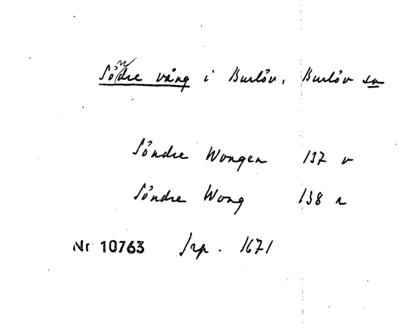 Söndre vång i Burlöv, Burlöv sn
Söndre Wongen 137 v
Söndre Wong 138 r
Nr 10763 Jrp. 1671